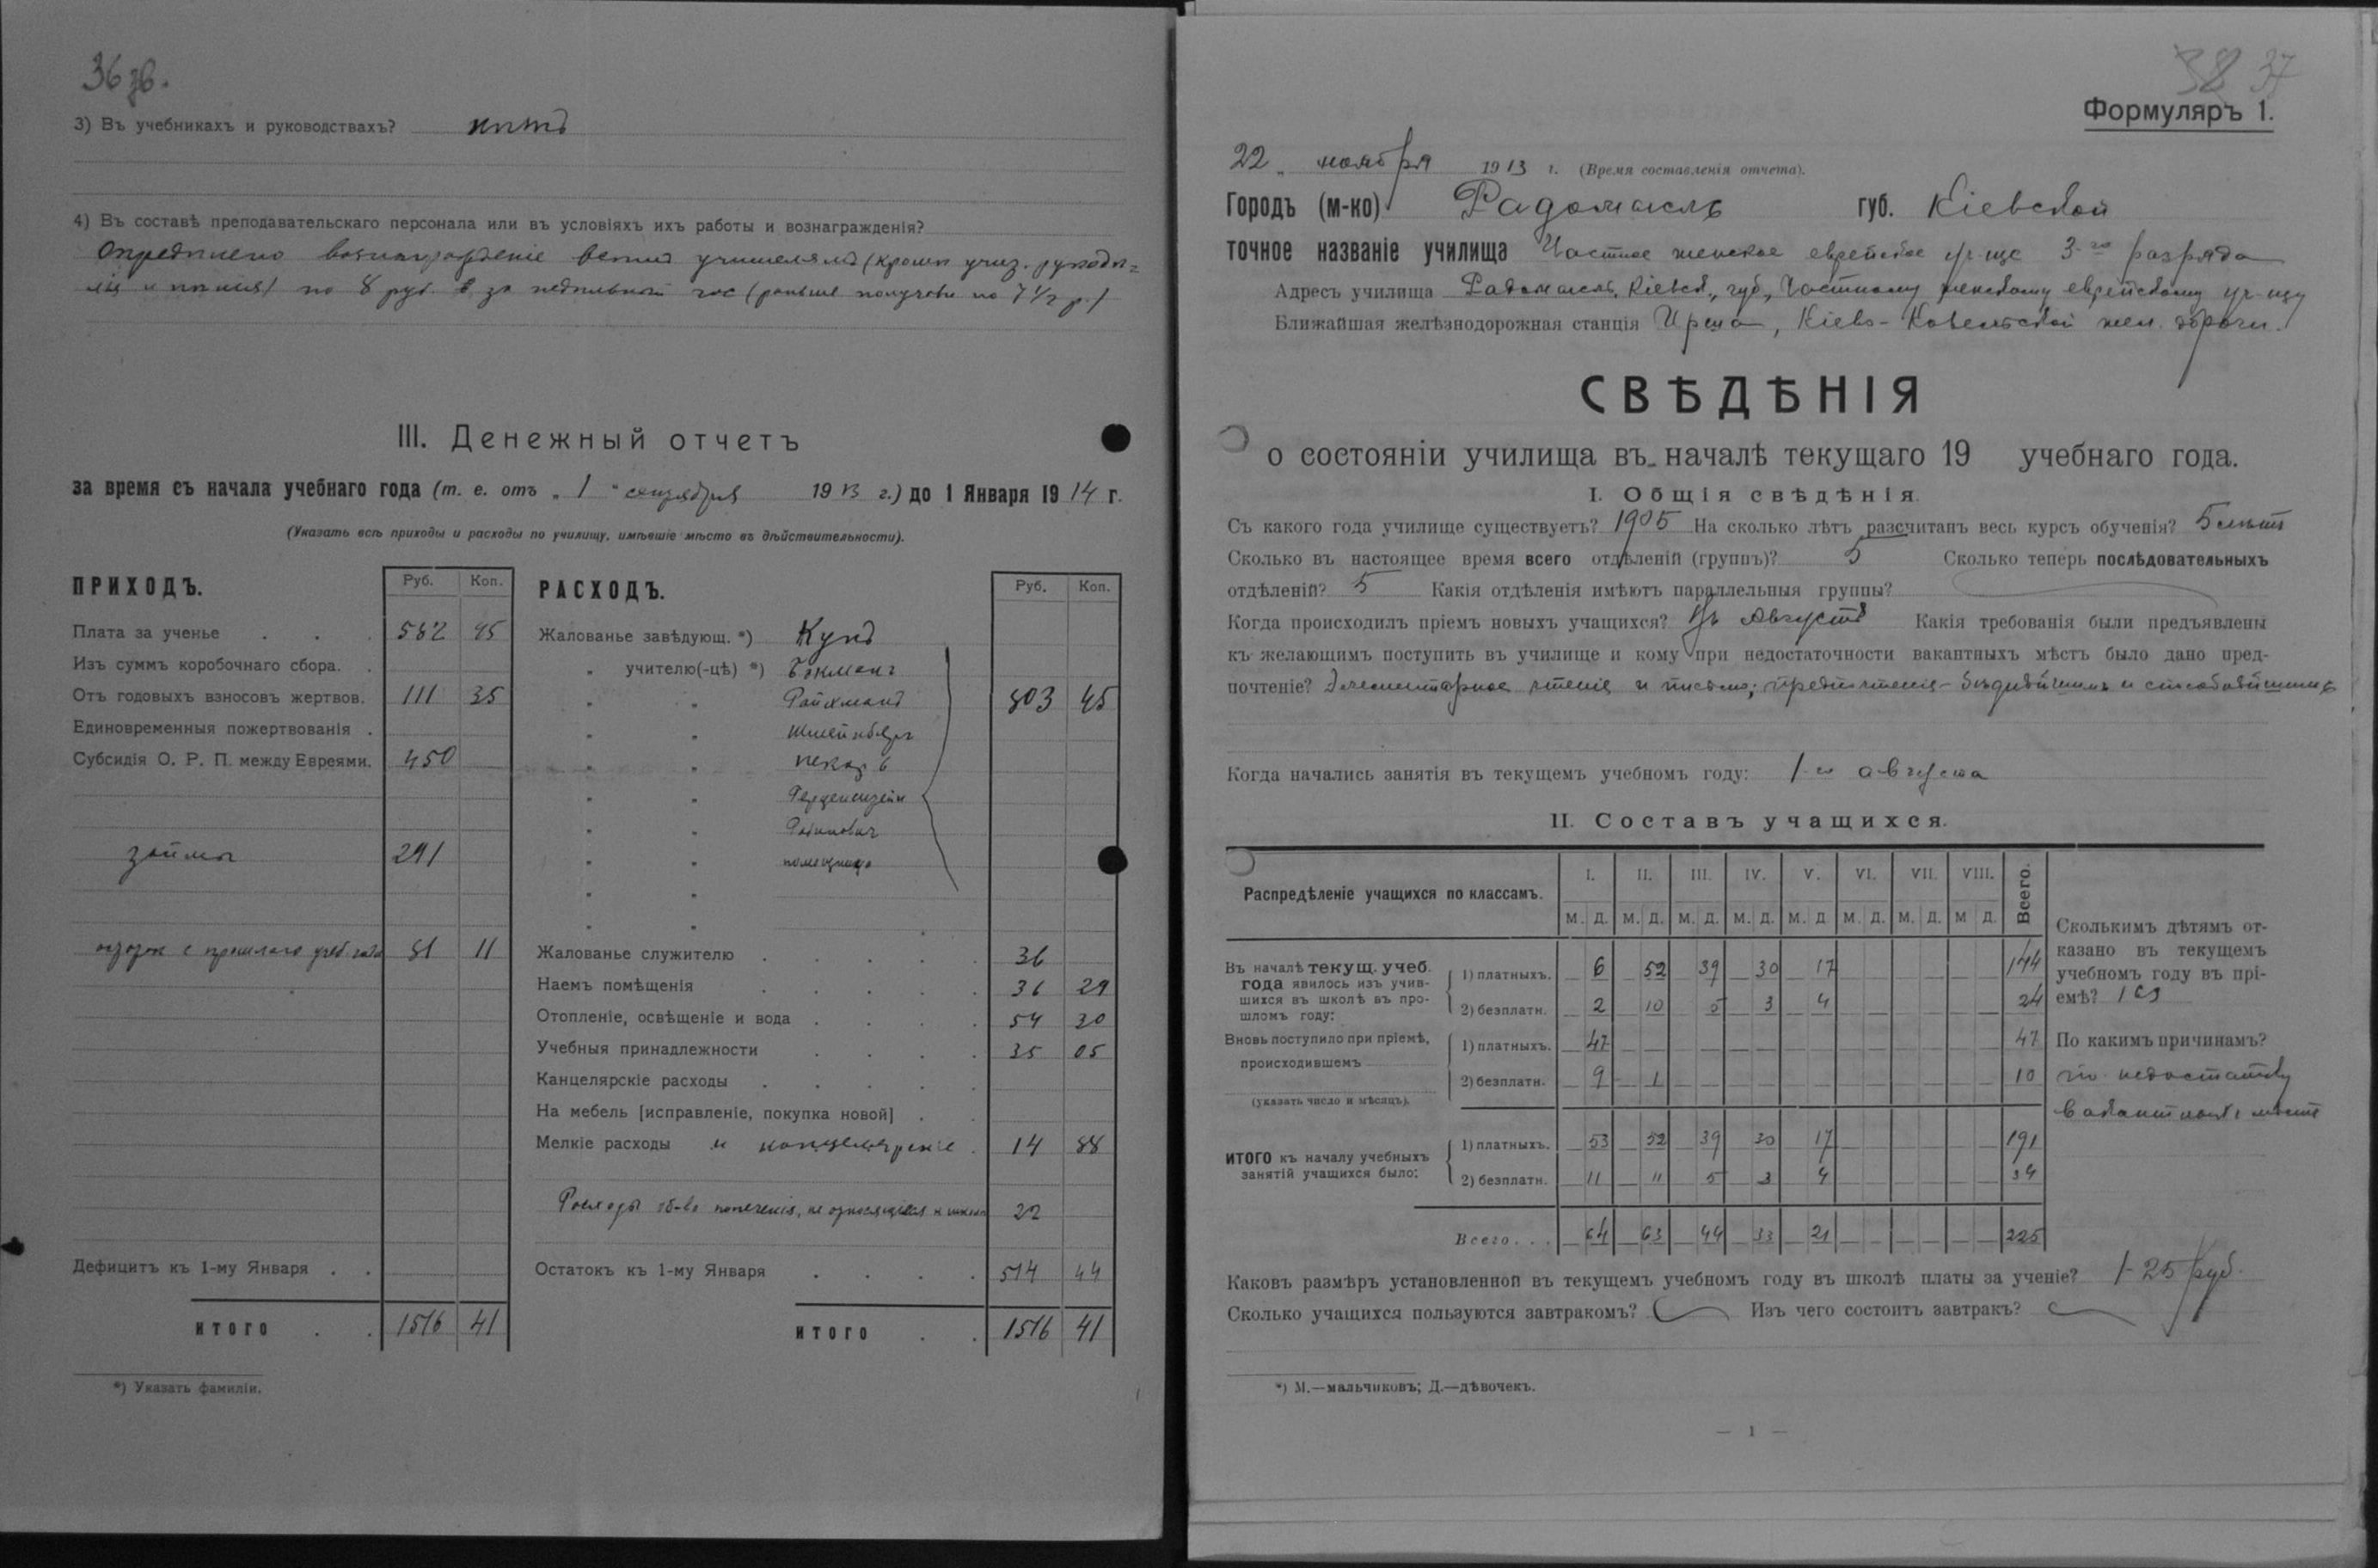 36 об.
3) Въ учебникахъ и руководствахъ? нѣтъ
4) Въ составѣ преподавательскаго персонала или въ условіяхъ ихъ работы и вознагражденія?
Опредѣлено вознагражденіе всѣмъ учителямъ (кромѣ учит. рукодѣ=
лія и пѣнія) по 8 руб. за недѣльный час (раньше получали по 7 1/2 р.)
III. Денежный отчетъ
за время съ начала учебнаго года (т. е. отъ „ 1 " сентября 1913 г.) до 1 Января 1914 г.
(Указать всѣ приходы и расходы по училищу, имѣвшіе мѣсто въ дѣйствительности).
ПРИХОДЪ. Руб. Коп.
Плата за ученье 582 95
Изъ суммъ коробочнаго сбора.
Отъ годовыхъ взносовъ жертвов. 111 35
Единовременныя пожертвованія
Субсидія О. Р. П. между Евреями. 450
займы 291
остаток с прошлаго учеб. года 81 11
Дефицитъ къ 1-му Января
ИТОГО 1516 41
*) Указать фамиліи.
РАСХОДЪ. Руб. Коп.
Жалованье завѣдующ. *) Кунъ
„ учителю(-цѣ) *) Бекманъ
„ „ Райхманъ 803 45
„ „ Штейнберг
„ „ Пекарь
„ „ Герценштейн
„ „ Рабинович
„ „ помощница
„ „
„ „
Жалованье служителю 36
Наемъ помѣщенія 36 29
Отопленіе, освѣщеніе и вода 54 30
Учебныя принадлежности 35 05
Канцелярскіе расходы
На мебель [исправленіе, покупка новой]
Мелкіе расходы и канцелярскіе 14 88
Расходы об-ва попеченія, не относящіеся к школѣ 22
Остатокъ къ 1-му Января 514 44
ИТОГО 1516 41
38 37
Формуляръ 1.
22 „ ноября 1913 г. (Время составленія отчета).
Городъ (м-ко) Радомысль губ. Кіевской
точное названіе училища Частное женское еврейское уч-ще 3-го разряда
Адресъ училища Радомысль, Кіевск. губ., Частному женскому еврейскому уч-щу
Ближайшая желѣзнодорожная станція Ирша, Кіево-Ковельской жел. дороги.
СВѢДѢНІЯ
о состояніи училища въ началѣ текущаго 19 учебнаго года.
I. Общія свѣдѣнія.
Съ какого года училище существуетъ? 1905 На сколько лѣтъ разсчитанъ весь курсъ обученія? 5 лѣтъ
Сколько въ настоящее время всего отдѣленій (группъ)? 5 Сколько теперь послѣдовательныхъ
отдѣленій? 5 Какія отдѣленія имѣютъ параллельныя группы?
Когда происходилъ пріемъ новыхъ учащихся? Въ Августѣ Какія требованія были предъявлены
къ желающимъ поступить въ училище и кому при недостаточности вакантныхъ мѣстъ было дано пред-
почтеніе? Элементарное чтеніе и письмо; предпочтеніе - бѣднѣйшимъ и способнѣйшимъ
Когда начались занятія въ текущемъ учебномъ году: 1-го августа
II. Составъ учащихся.
Распредѣленіе учащихся по классамъ. I. II. III. IV. V. VI. VII. VIII. Всего.
М. Д. М. Д. М. Д. М. Д. М. Д. М. Д. М. Д. М. Д.
Въ началѣ текущ. учеб. года явилось изъ учив-шихся въ школѣ въ про-шломъ году: 1) платныхъ. 6 52 39 30 17 144
2) безплатн. 2 10 5 3 4 24
Вновь поступило при пріемѣ, происходившемъ 1) платныхъ. 47 47
2) безплатн. 9 1 10
(указать число и мѣсяцъ).
ИТОГО къ началу учебныхъ занятій учащихся было: 1) платныхъ. 53 52 39 30 17 191
2) безплатн. 11 11 5 3 4 34
Всего . . . 64 63 44 33 21 225
Сколькимъ дѣтямъ от-
казано въ текущемъ
учебномъ году въ прі-
емѣ?
По какимъ причинамъ?
по недостатку
вакантныхъ мѣстъ
Каковъ размѣръ установленной въ текущемъ учебномъ году въ школѣ платы за ученіе? 1-25 руб.
Сколько учащихся пользуются завтракомъ? Изъ чего состоитъ завтракъ?
*) М.—мальчиковъ; Д.—дѣвочекъ.
— 1 —